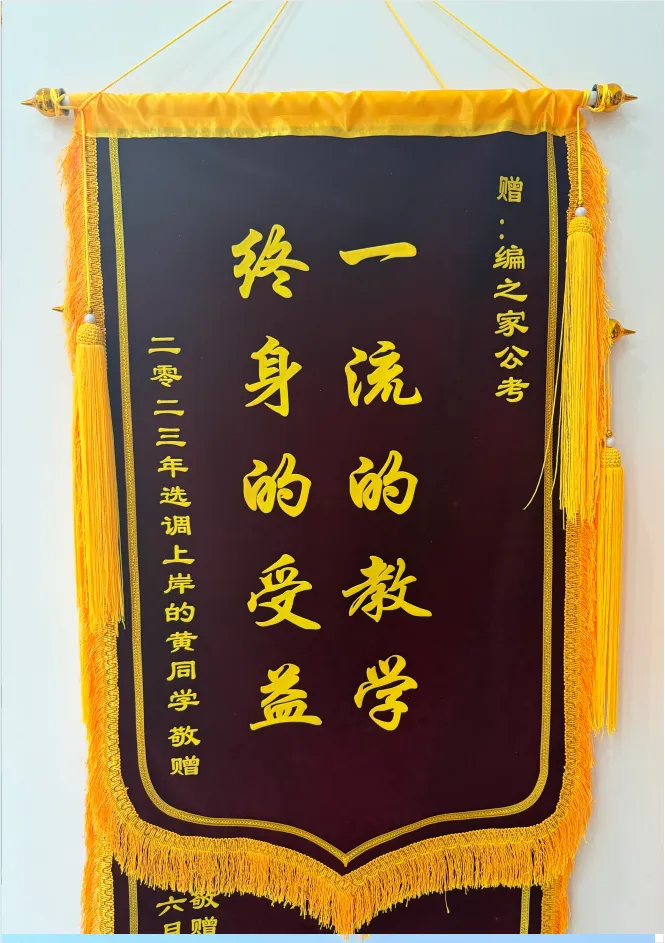 赠：编之家公考
一流的教学
终身的受益
二零二三年选调上岸的黄同学 敬赠
敬赠
六月